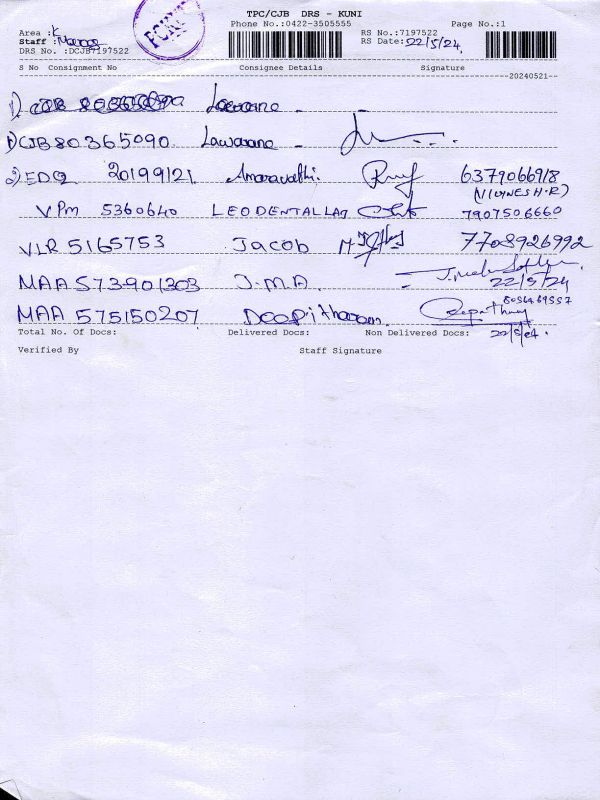 TPC/CJB DRS - KUNI
Phone No.:0422-3505555 Page No.:1
Area : K RS No.:7197522
Staff : RS Date: 22/5/24,
DRS No. :DCJB7197522
S No Consignment No Consignee Details Signature
20240521
1)
1) CJB 80365090 Lawarane -
2) EDQ 20199121 Amaravathi. 6379066918
(VIGNESH.R)
VPM 5360640 LEO DENTAL LAB 7907506660
VLR 5165753 Jacob 7708926992
MAA 573901303 J.M.A.
22/5/24
MAA 575150207 Deepitharam.
Total No. Of Docs: Delivered Docs: Non Delivered Docs: 22/5/24.
Verified By Staff Signature